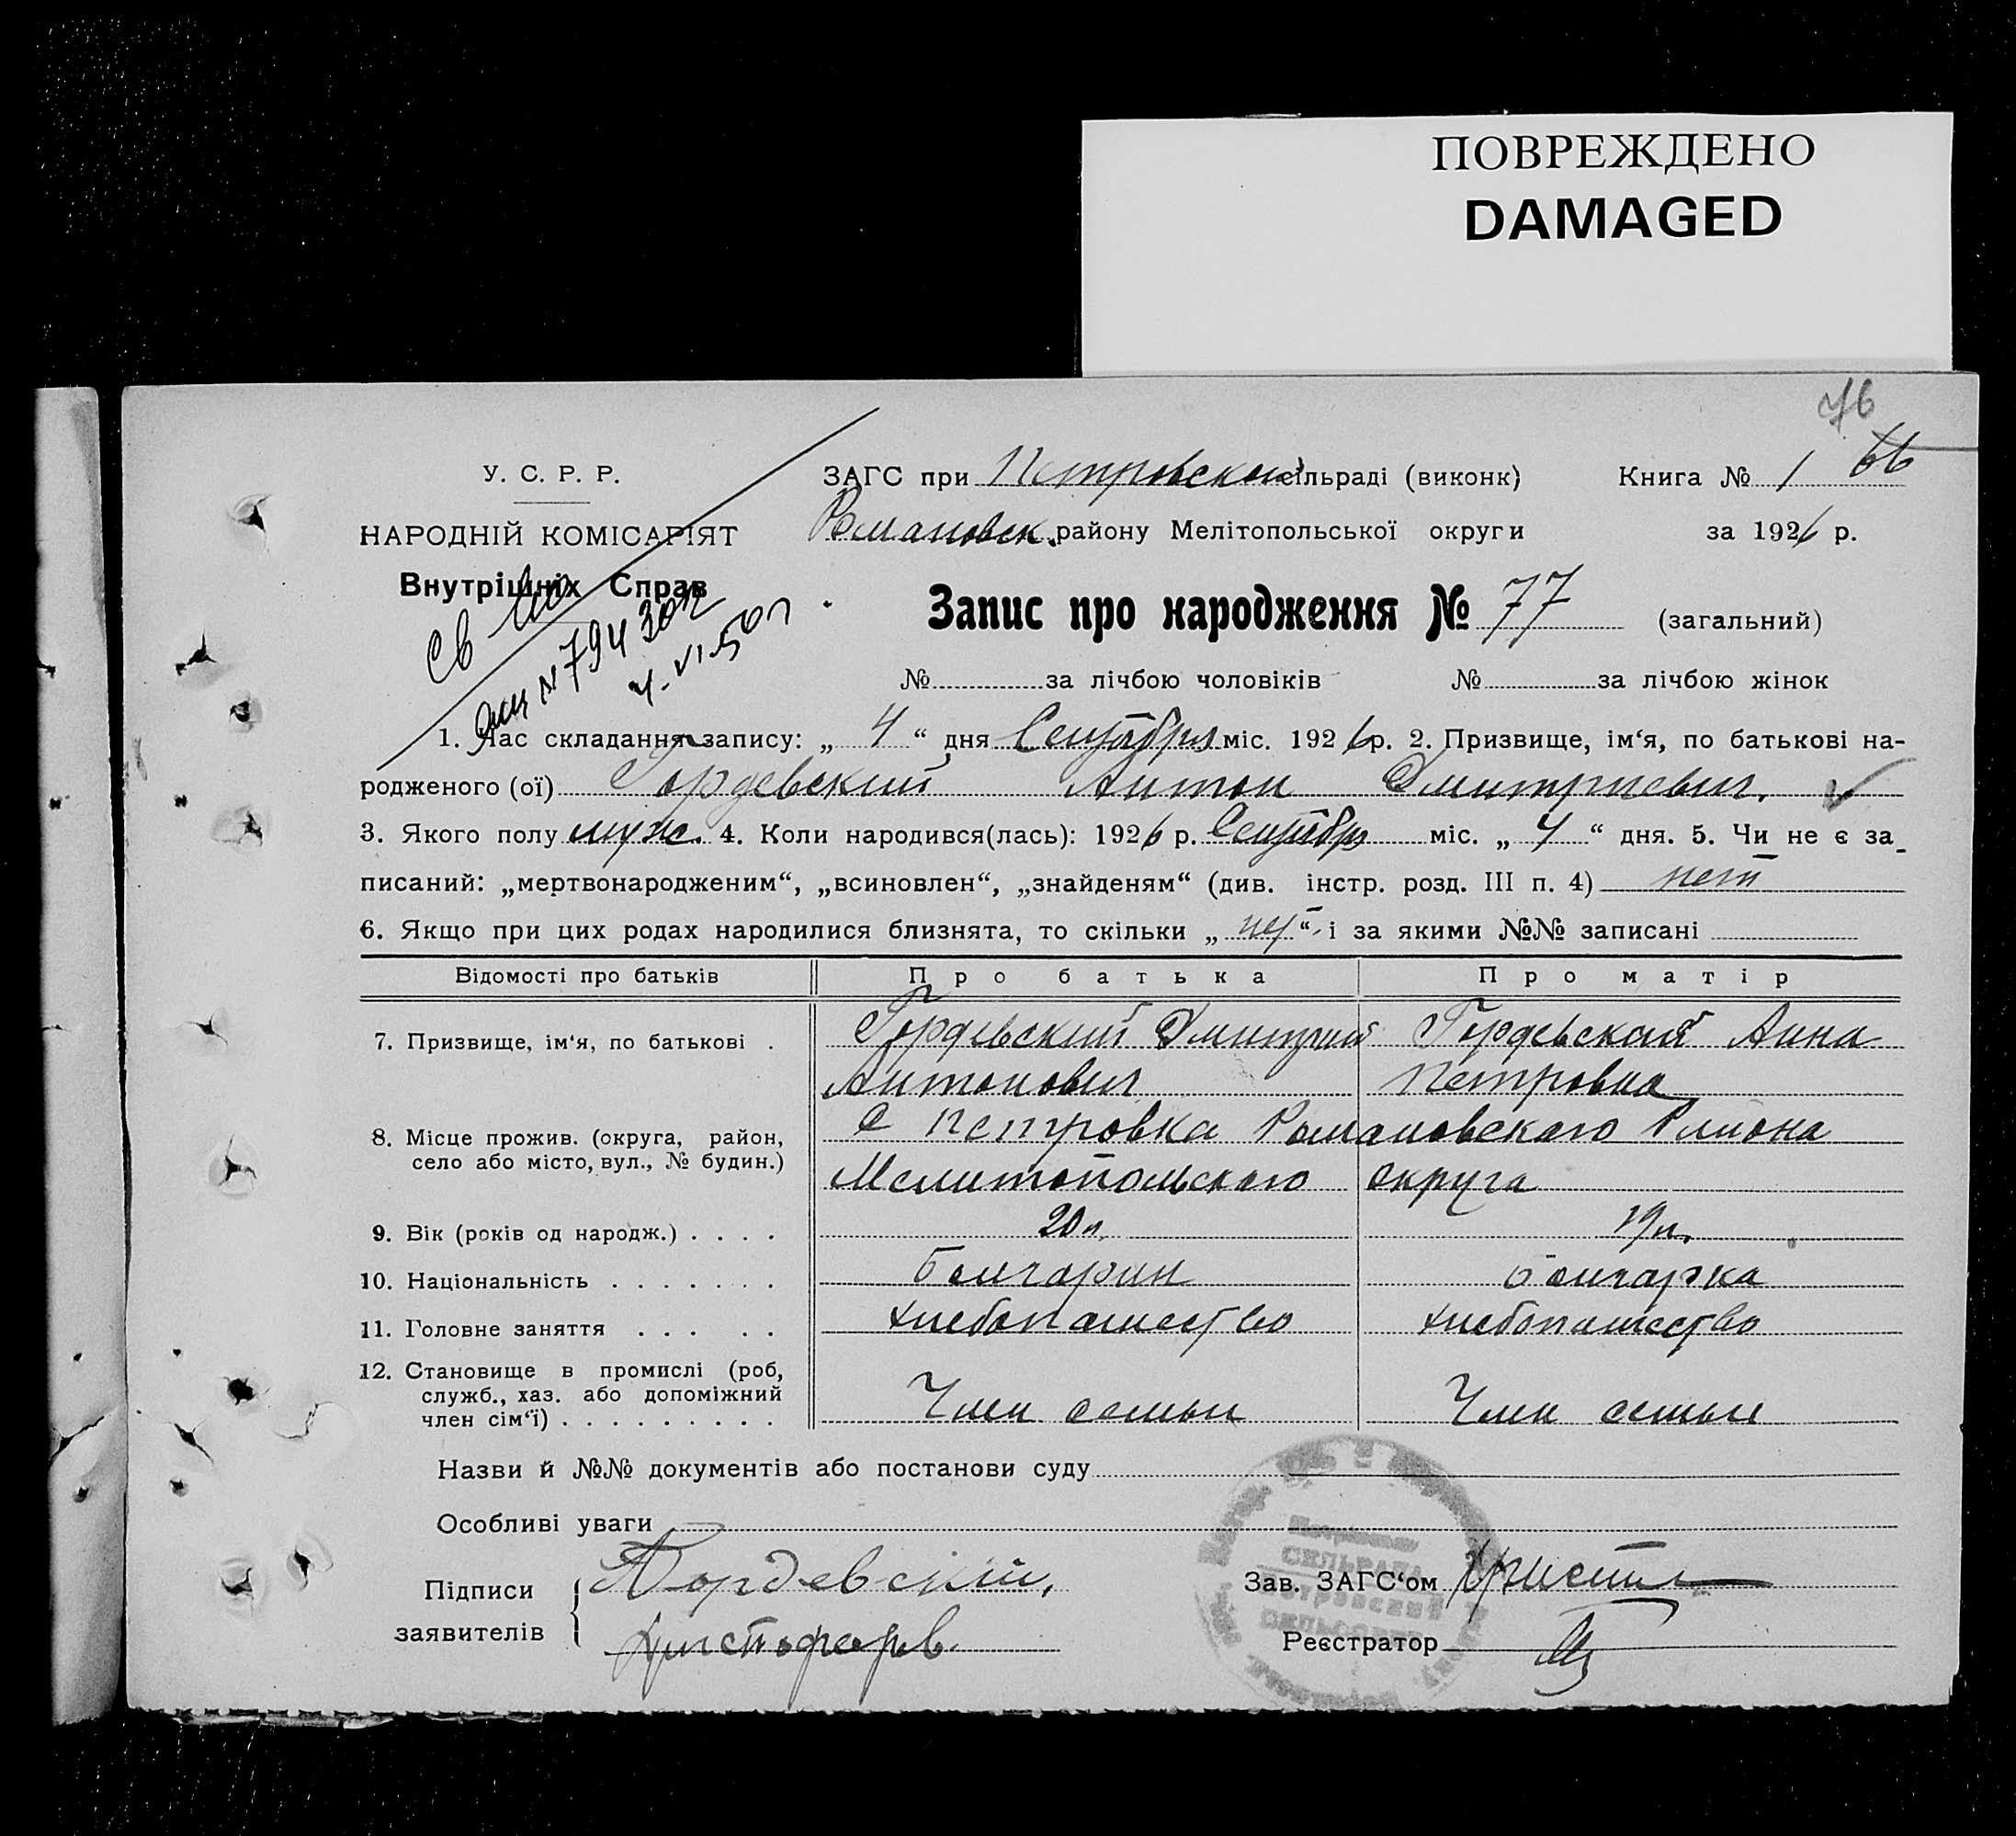 ПОВРЕЖДЕНО
DAMAGED
76
У. С. Р. Р.
ЗАГС при Петровской сільраді (виконк)
Книга № 1 66
НАРОДНІЙ КОМІСАРІЯТ
Романовск. району Мелітопольської округи
за 1926 р.
Внутрішніх Справ
Св
№ 794302
4-VI-50г
Запис про народження № 77 (загальний)
№ за лічбою чоловіків № за лічбою жінок
1. Час складання запису: „ 4 “ дня Сентября міс. 1926 р. 2. Призвище, ім‘я, по батькові на-
родженого (ої) Гордевский Антон Дмитриевич.
3. Якого полу муж. 4. Коли народився(лась): 1926 р. Сентябр міс. „ 4 “ дня. 5. Чи не є за-
писаний: „мертвонародженим“, „всиновлен“, „знайденям“ (див. інстр. розд. III п. 4) нет
6. Якщо при цих родах народилися близнята, то скільки „ нет “ і за якими №№ записані
Відомості про батьків Про батька Про матір
7. Призвище, ім‘я, по батькові . Гордевский Дмитрий Гордевская Анна
Антонович Петровна
8. Місце прожив. (округа, район, село або місто, вул., № будин.) с Петровка Романовского Района
Мелитопольского округа
9. Вік (років од народж.) . . . . 20 л. 19 л.
10. Національність . . . . . . . Болгарин болгарка
11. Головне заняття . . . . . хлебопашество хлебопашество
12. Становище в промислі (роб,
служб., хаз. або допоміжний
член сім‘ї) . . . . . . . . . Член семьи Член семьи
Назви й №№ документів або постанови суду
Особливі уваги
Підписи заявителів Гордевский.
Христофоров.
Зав. ЗАГС‘ом
Реєстратор
СІЛЬРАДА
ПЕТРОВСКИЙ
СЕЛЬСОВЕТ